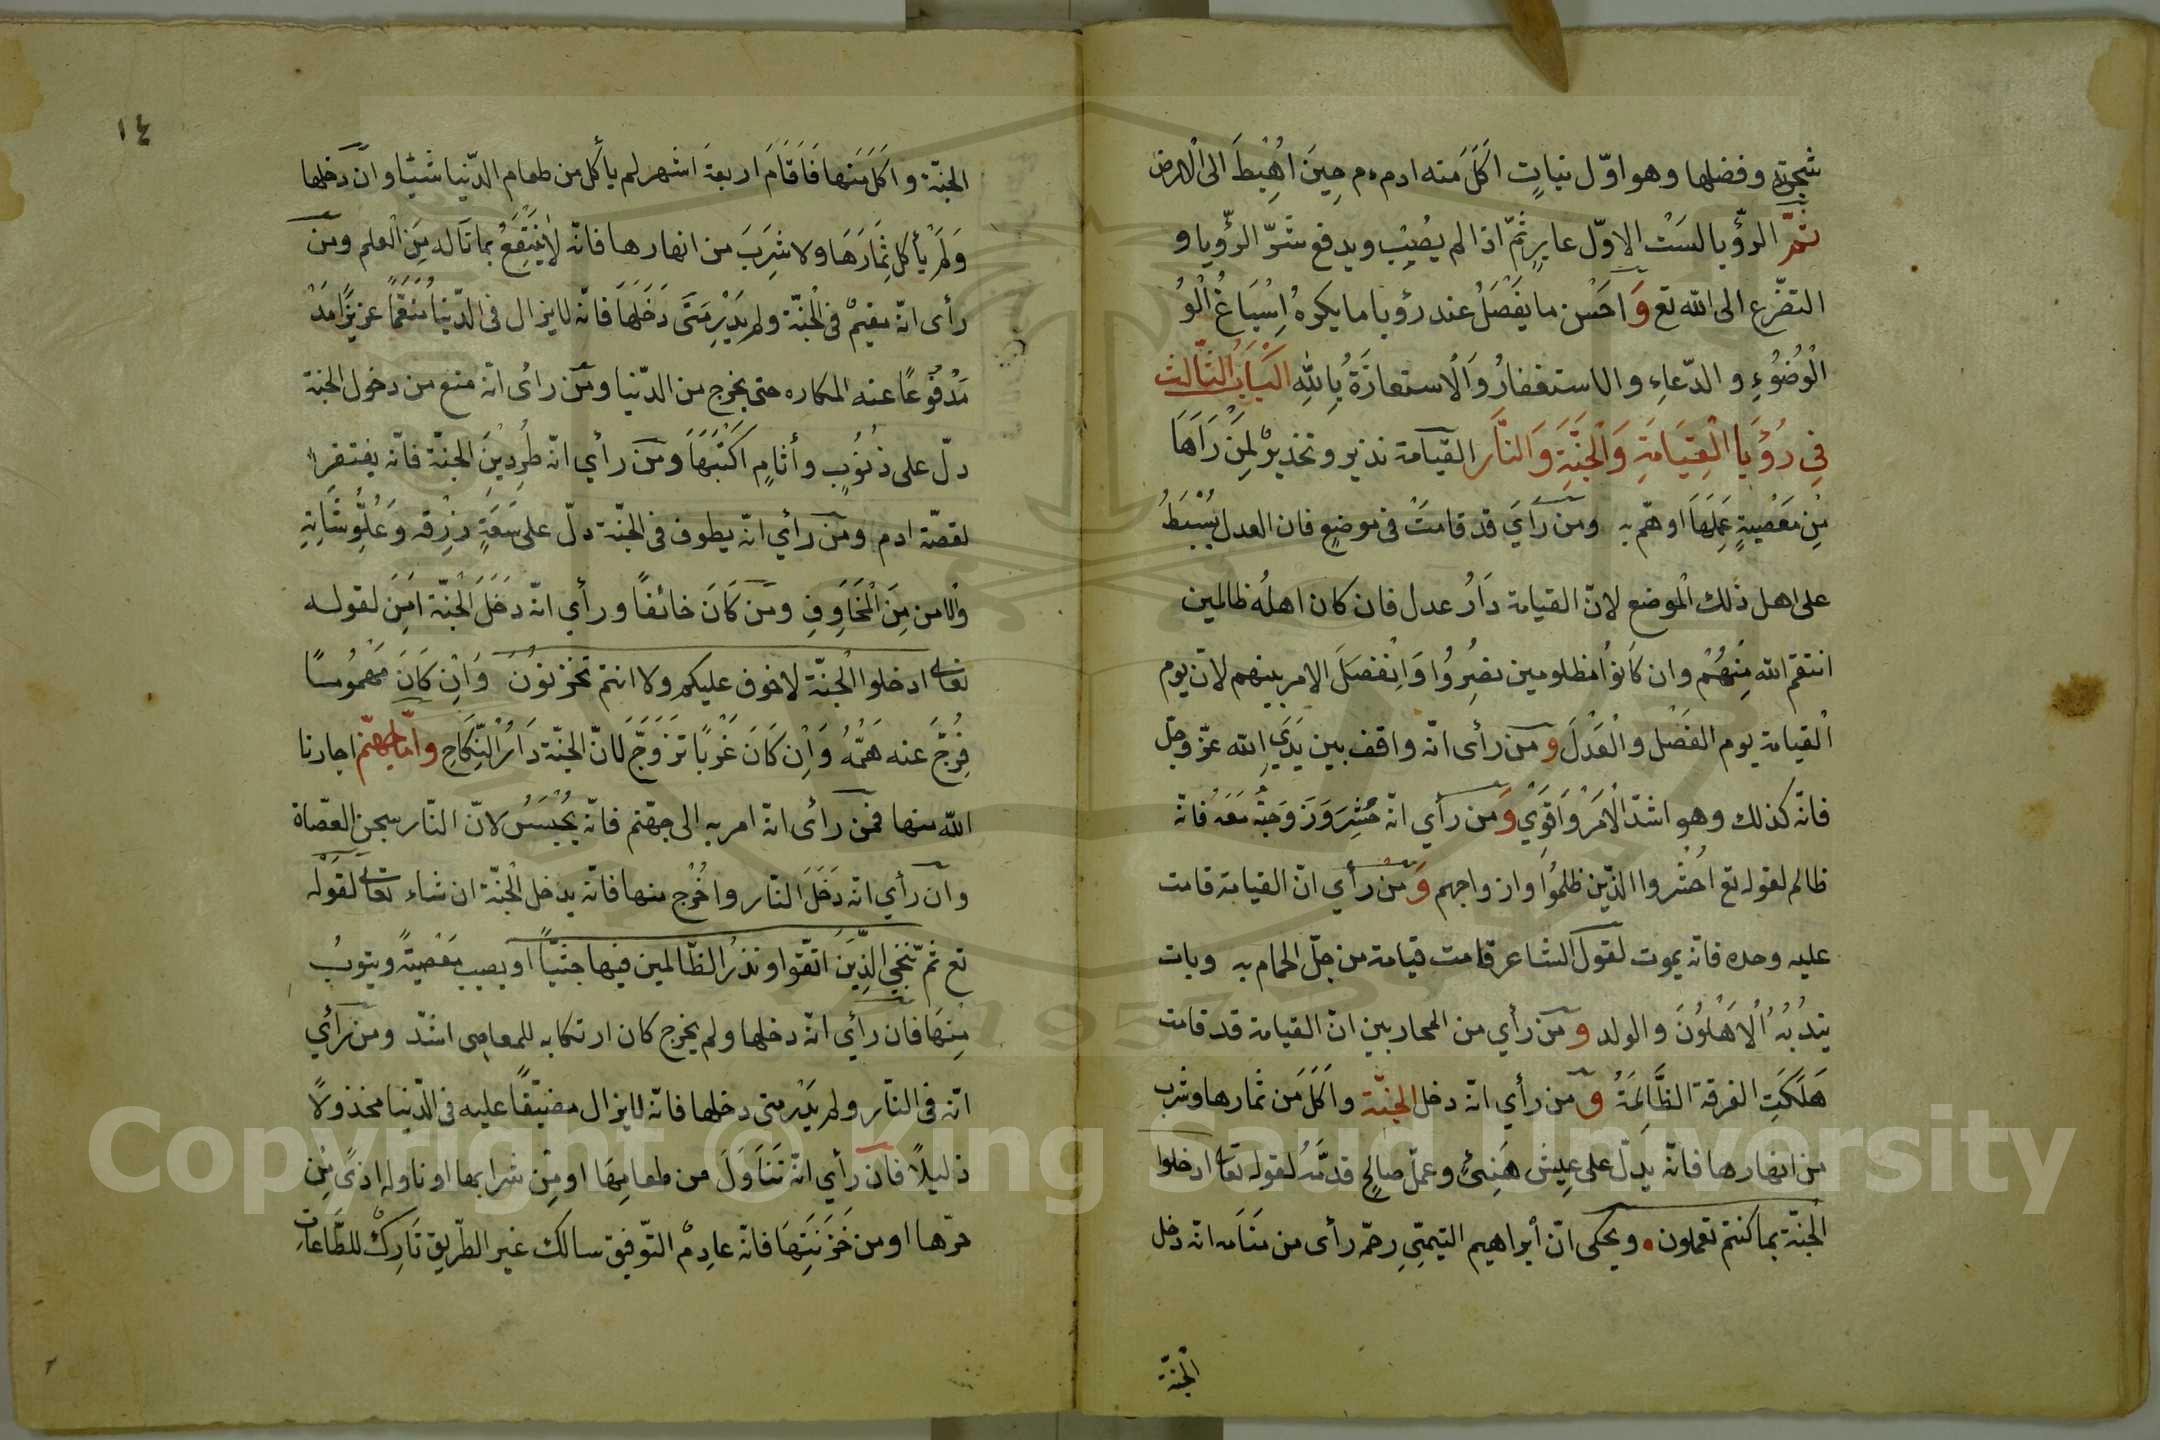 شجرته وفضلها وهو اوّل نباتٍ اَكَلَ منه ادم ءم حِينَ اُهْبِطَ الى الارض
ثمّ الرؤيا لسَتْ الاوّل عابرٍ ثمّ اذا لم يصِيْب ويدفع شرّ الرؤيا و
التضّرع الى الله تع وَاحَسْن ما يفَصْلُ عند رؤيا ما يكرهُ اِسْبَاغُ الْوُ
الْوُضُوُءِ و الدّعاءِ و الاستغفارُ وَالْاستعاذَةُ بِاللهِ الَبَابُ الثّالث
فِي رُؤيَا الْقِيَامَةِ وَالْجَنَّةِ وَالنَّار القيامة نذير وتحذيرٌ لِمَنْ رَاَهَا
مِنْ مَعَصْيةٍ عَمِلَهَا او همّ به ومن رَأيَ قد قامتْ فى موضعٍ فان العدل يُبْسَطُ
على اهل ذلك الْموضع لانّ القيامة دَارُ عدل فان كان اهلُه ظالمين
انتقم الله مِنْهُمْ وان كانوُا مظلومين نصِرُوا وَاِنْفصَلَ الامر بينهم لانّ يوم
الْقيامة يوم الفَصْل والْعَدْلَ ومن رأى انّه واقف بين يَدَيِ الله عزّ وجلّ
فانّه كذلك وهو اشدّ الْاَمَرْ وَاقَوَيْ وَمن رأي انّه حُشِرَ وَزَوَجَتُهُ مَعَهُ فانّه
ظالم لقوله تع احُشْروا الذّين ظلمُوُا وازواجهم وَمن رأي انّ القيامة قامت
عليه وحده فانّه يموت لقول الشاعر قامت قيامة من حلّ الحمام به وبات
يَندُبُهُ الْاَهْلُوُنَ والولد ومن رأي من المحاربين انّ القيامة قد قامت
هَلَكَتِ الفرقة الظَّالِمَةُ ومن رأي انّه دخل الجنّة واَكَلَ من ثمارها وشرب
من انهارها فانّه يدلّ على عيِش هَنِىئٍ وعملٌ صالحٍ قدمّهُ لقوله تعالى ادخلوا
الْجنّة بما كنتم تعملون ويحكى انّ أبراهيم التيمّي رحمّه رأى من مَنَامه انّه دخل
الجنّة
١٤
الجنّة واَكَلَ منها فَاَقَامَ اربعةَ اشهر لم يأكل من طعام الدّنيا شَيْئا وان دخلها
وَلَمْ يأكلْ ثِمَارَهَا ولا شَرِبَ من انهارها فانّه لاَ يَنْتَفِعُ بما نَاَله مِنَ الْعلم ومن
رأى انّه مقيمٌ فى الْجنّة ولم يَدْرِ مَتَى دَخَلَهَا فانّه لا يزال فى الدّنيا مُنَعَّمًا عزيزًا مَدْ
مَدْفُوُعًا عنه المكاره حتى يخرج من الدّنيا ومن رأى انّه منع من دخول الجنة
دلّ على ذُنُوُبٍ وأثامٍ اكتْسَبَهَا ومن رأي انّه طُرِدَ مِنَ الجنّة فانّه يفتقر
لقصّة ادم ومن رأي انّه يطوف فى الجنّة دلّ على سَعَةِ رِزْقه وَعُلِوُّ شَاَنِهِ
والامن مِنَ الْمخَاَوِفِ ومن كَانَ خائفًا ورأي انّه دَخَلَ الْجنّة اَمِنَ لقوله
تعالى ادخلوا الْجنّة لا خوف عليكم ولا انتم تحزنوُنُ وَاِنْ كَانَ مَهْمُومًا
فُرِجَّ عنه هَمَّهُ وَاِنْ كَانَ عَزْبًا تزَوَجَّ لانّ الجنّة دَارُ النِّكَاحِ وامّا جهنّم اجارنا
الله منها فمن رأى انّه امر به الى جهّنم فانّه يُحْبَسُ لانّ النّار سجن العصّاة
وان رأي انّه دَخَلَ النّار واخُرْج منها فانّه يدخل الْجنّة ان شاء تعالى لقَوْله
تع ثمّ نُنَجّي الذِّينَ اتقّوا ونذرُ الظّالمين فيها جثيّاً او يصيب مَعَصْيَةً ويتوبُ
مِنهَا فان رأي انّه دخلها ولم يخرج كان ارتكابه للمعاصى اشدّ ومن رَأي
انّه فى النّار ولم يَدْرِ متى دخلها فانّه لا يزال مضيّقًا عليه فى الدّنيا مخذولاً
ذليلًا فان رأي انّه تنَاَوَلَ من طعامِهَا او مِن شرابها او ناوله اذىً مِنْ
حرّها او من خَزَنَتِهَا فانّه عادِمْ التوّفيق سالك غير الطّريق تَارِكْ للطّاعات